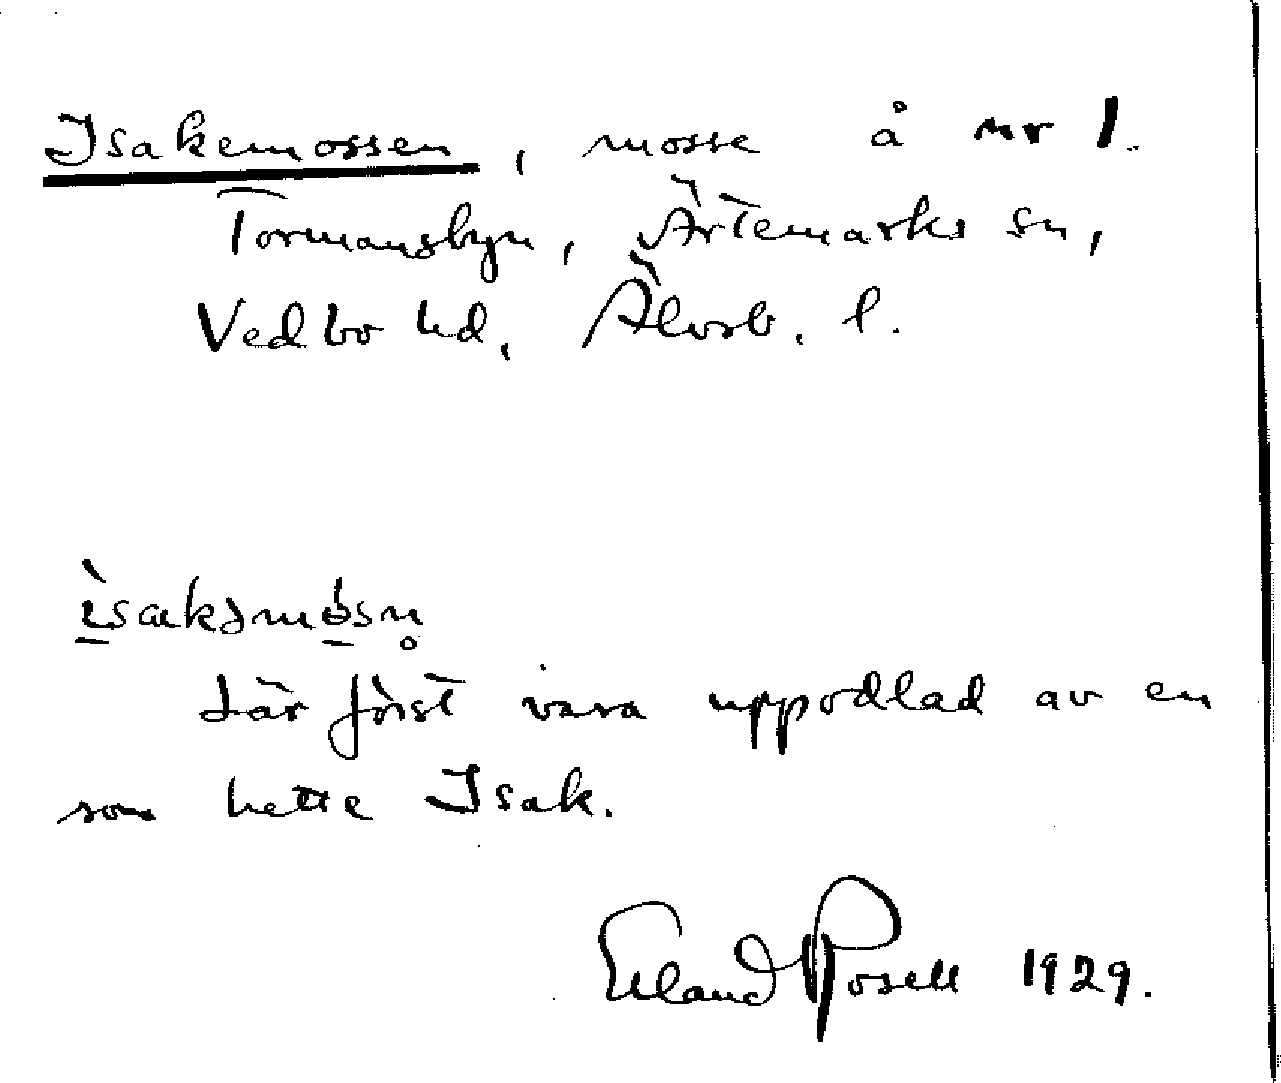 Isakemossen, mosse å nr 1.
Tormansbyn, Ärtemarks sn,
Vedbo hd, Älvsb. l.
lär först vara uppodlad av en
som hette Isak.
Erland Rosell 1929.